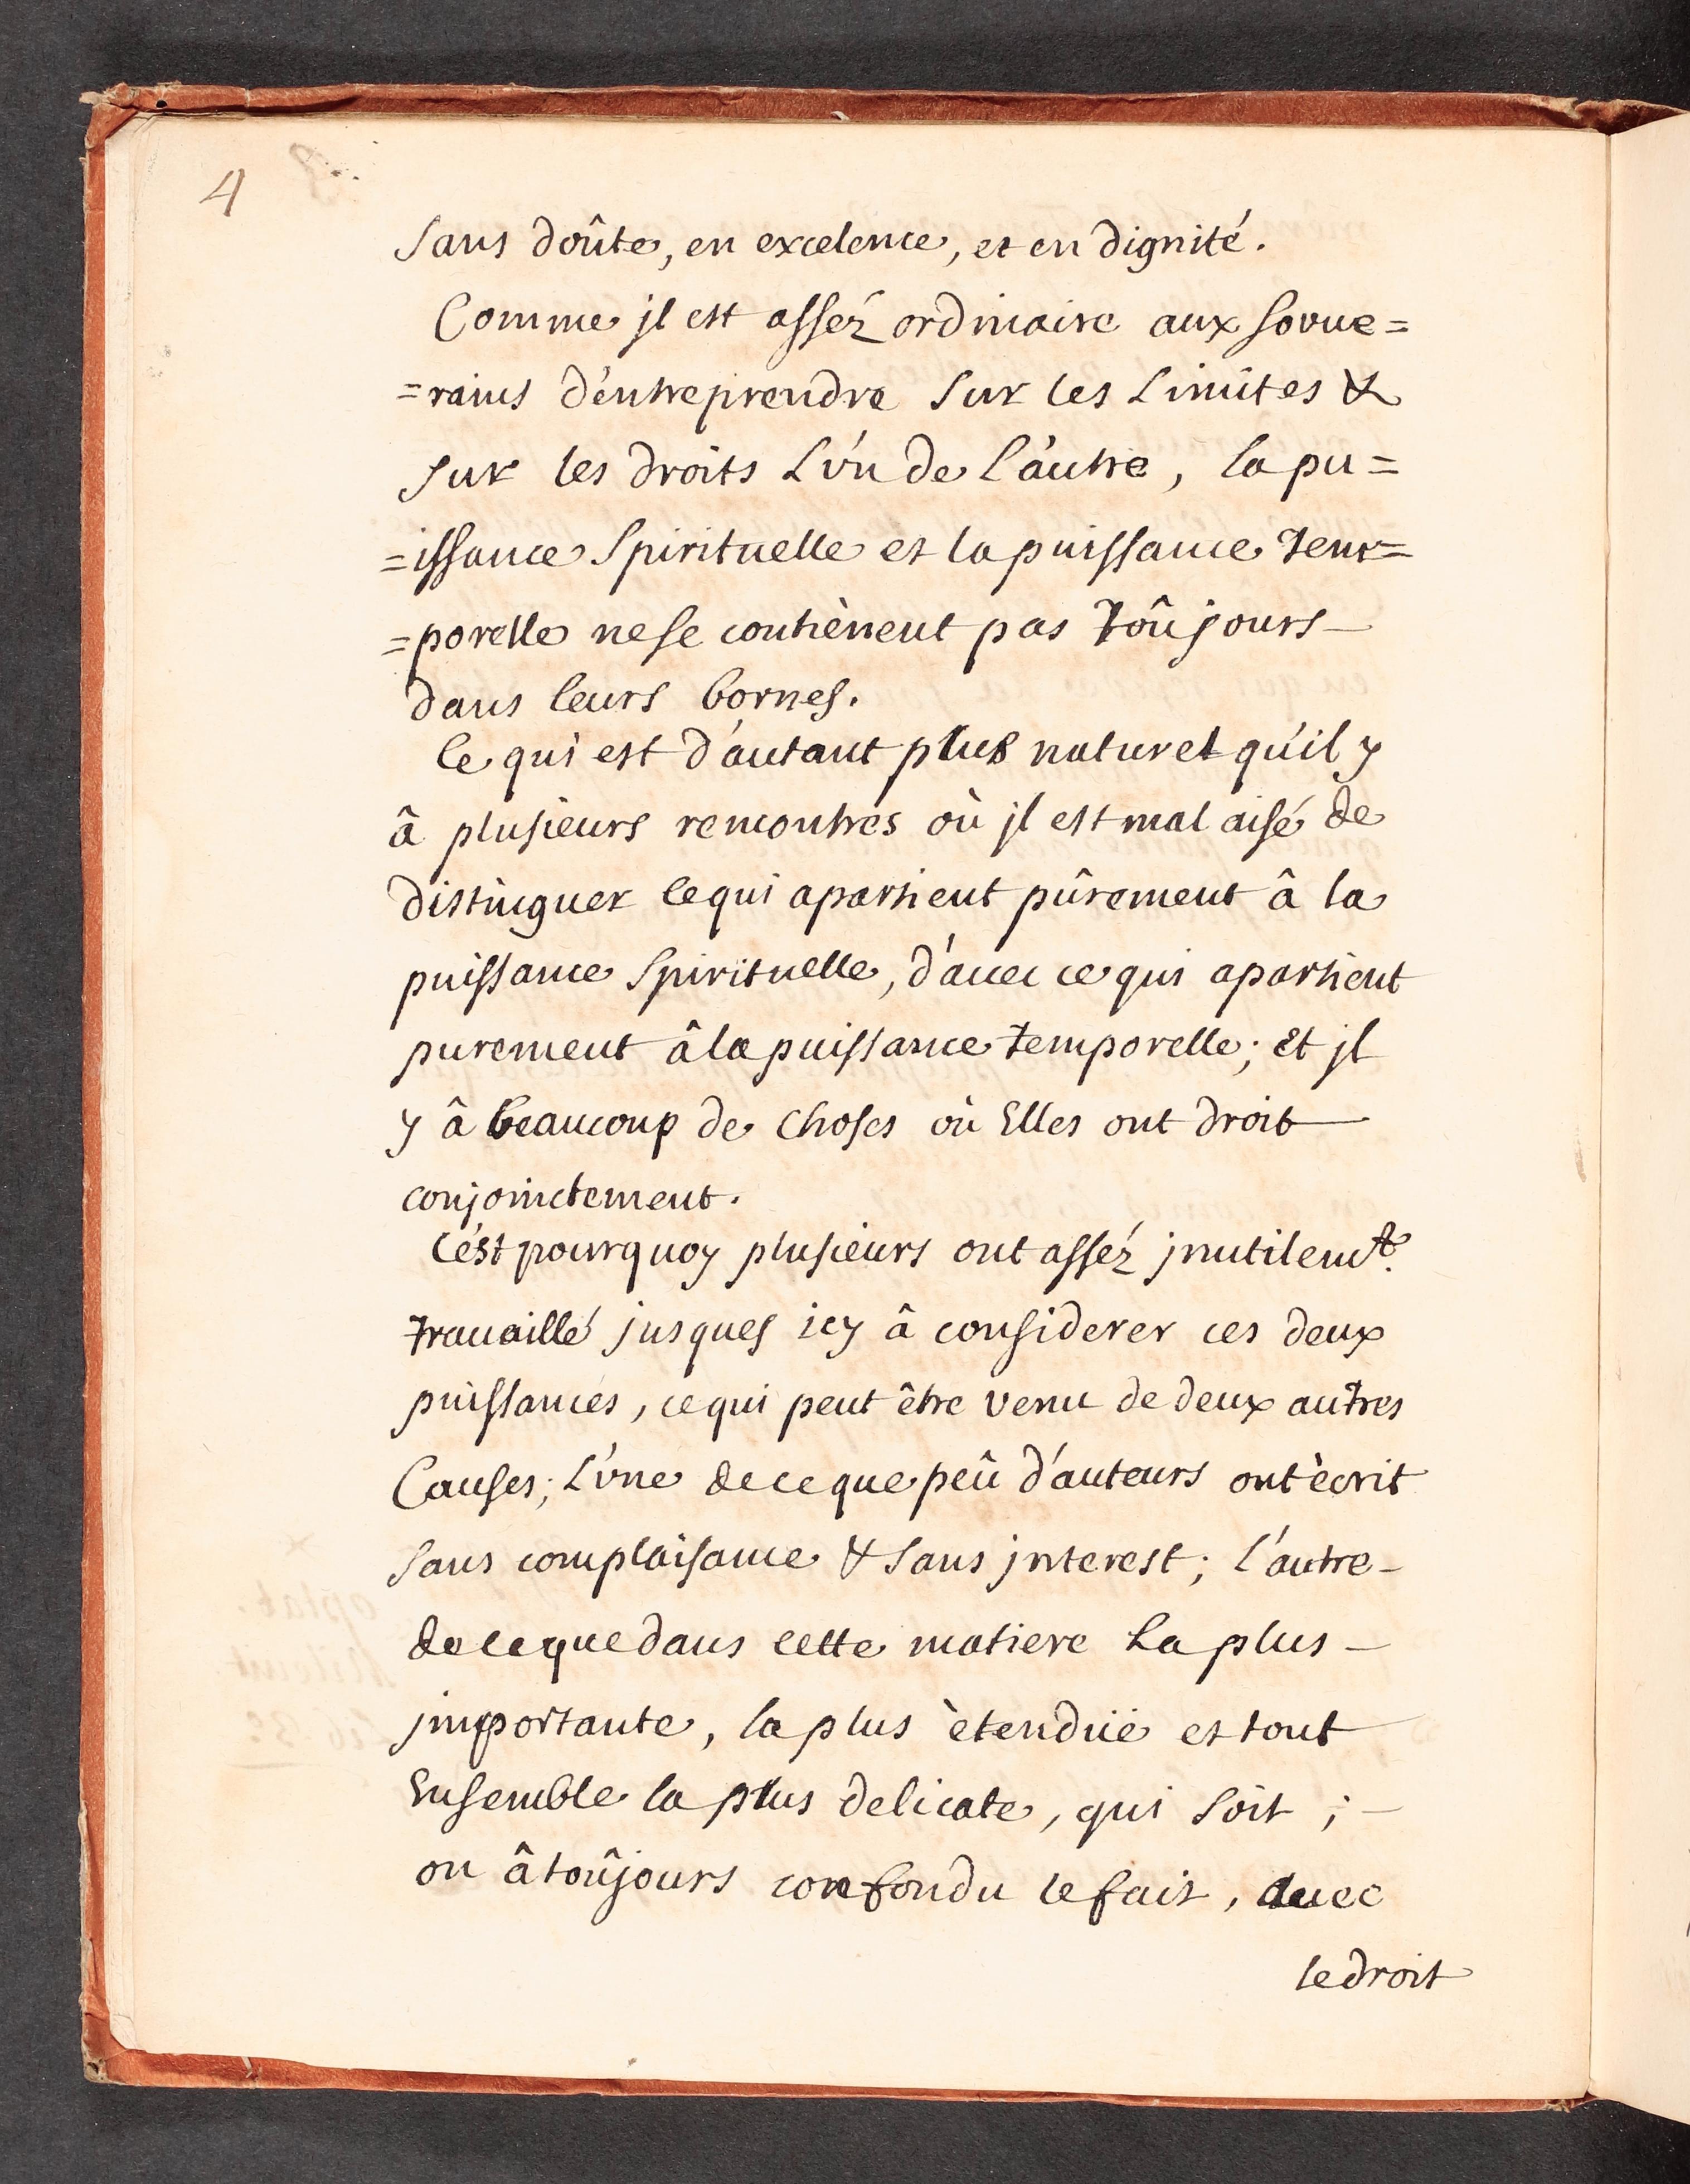 4
sans doûte, en excelence, et en dignité.
Comme jl est assez ordinaire aux souue=
=rains d'entreprendre sur les Limites &
sur les droits L'un de L'autre, la pu=
=issance spirituelle et la puissance Tem=
=porelle ne se contiènent pas Toûjours
dans leurs bornes.
Ce qui est d'autant plus naturel qu'il y
â plusieurs rencontres où jl est mal aisé de
distinguer ce qui apartient pûrement â la
puissance spirituelle, d'auec ce qui apartient
purement â la puissance temporelle; Et jl
y â beaucoup de choses où Elles ont droit
conjoinctement.
C'est pourquoy plusieurs ont assez jnutilemt.
trauaillé jusques icy â considerer ces deux
puissances, ce qui peut être venu de deux autres
Causes; L'vne de ce que peû d'auteurs ont ècrit
sans complaisance & sans jnterest; l'autre
de ce que dans cette matiere La plus
jmportante, la plus ètenduë et tout
Ensemble la plus delicate, qui soit ;
on â toûjours confondu le fait, auec
le droit